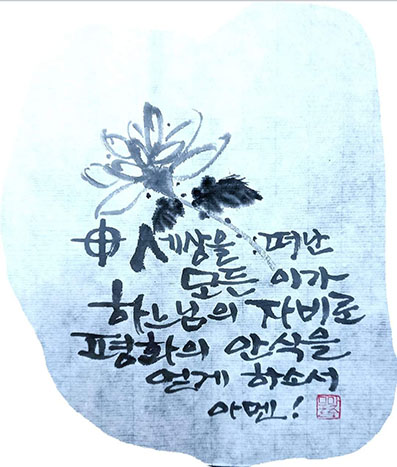 세상을 떠난
모든 이가
하느님의 자비로
평화의 안식을
얻게 하소서
아멘!